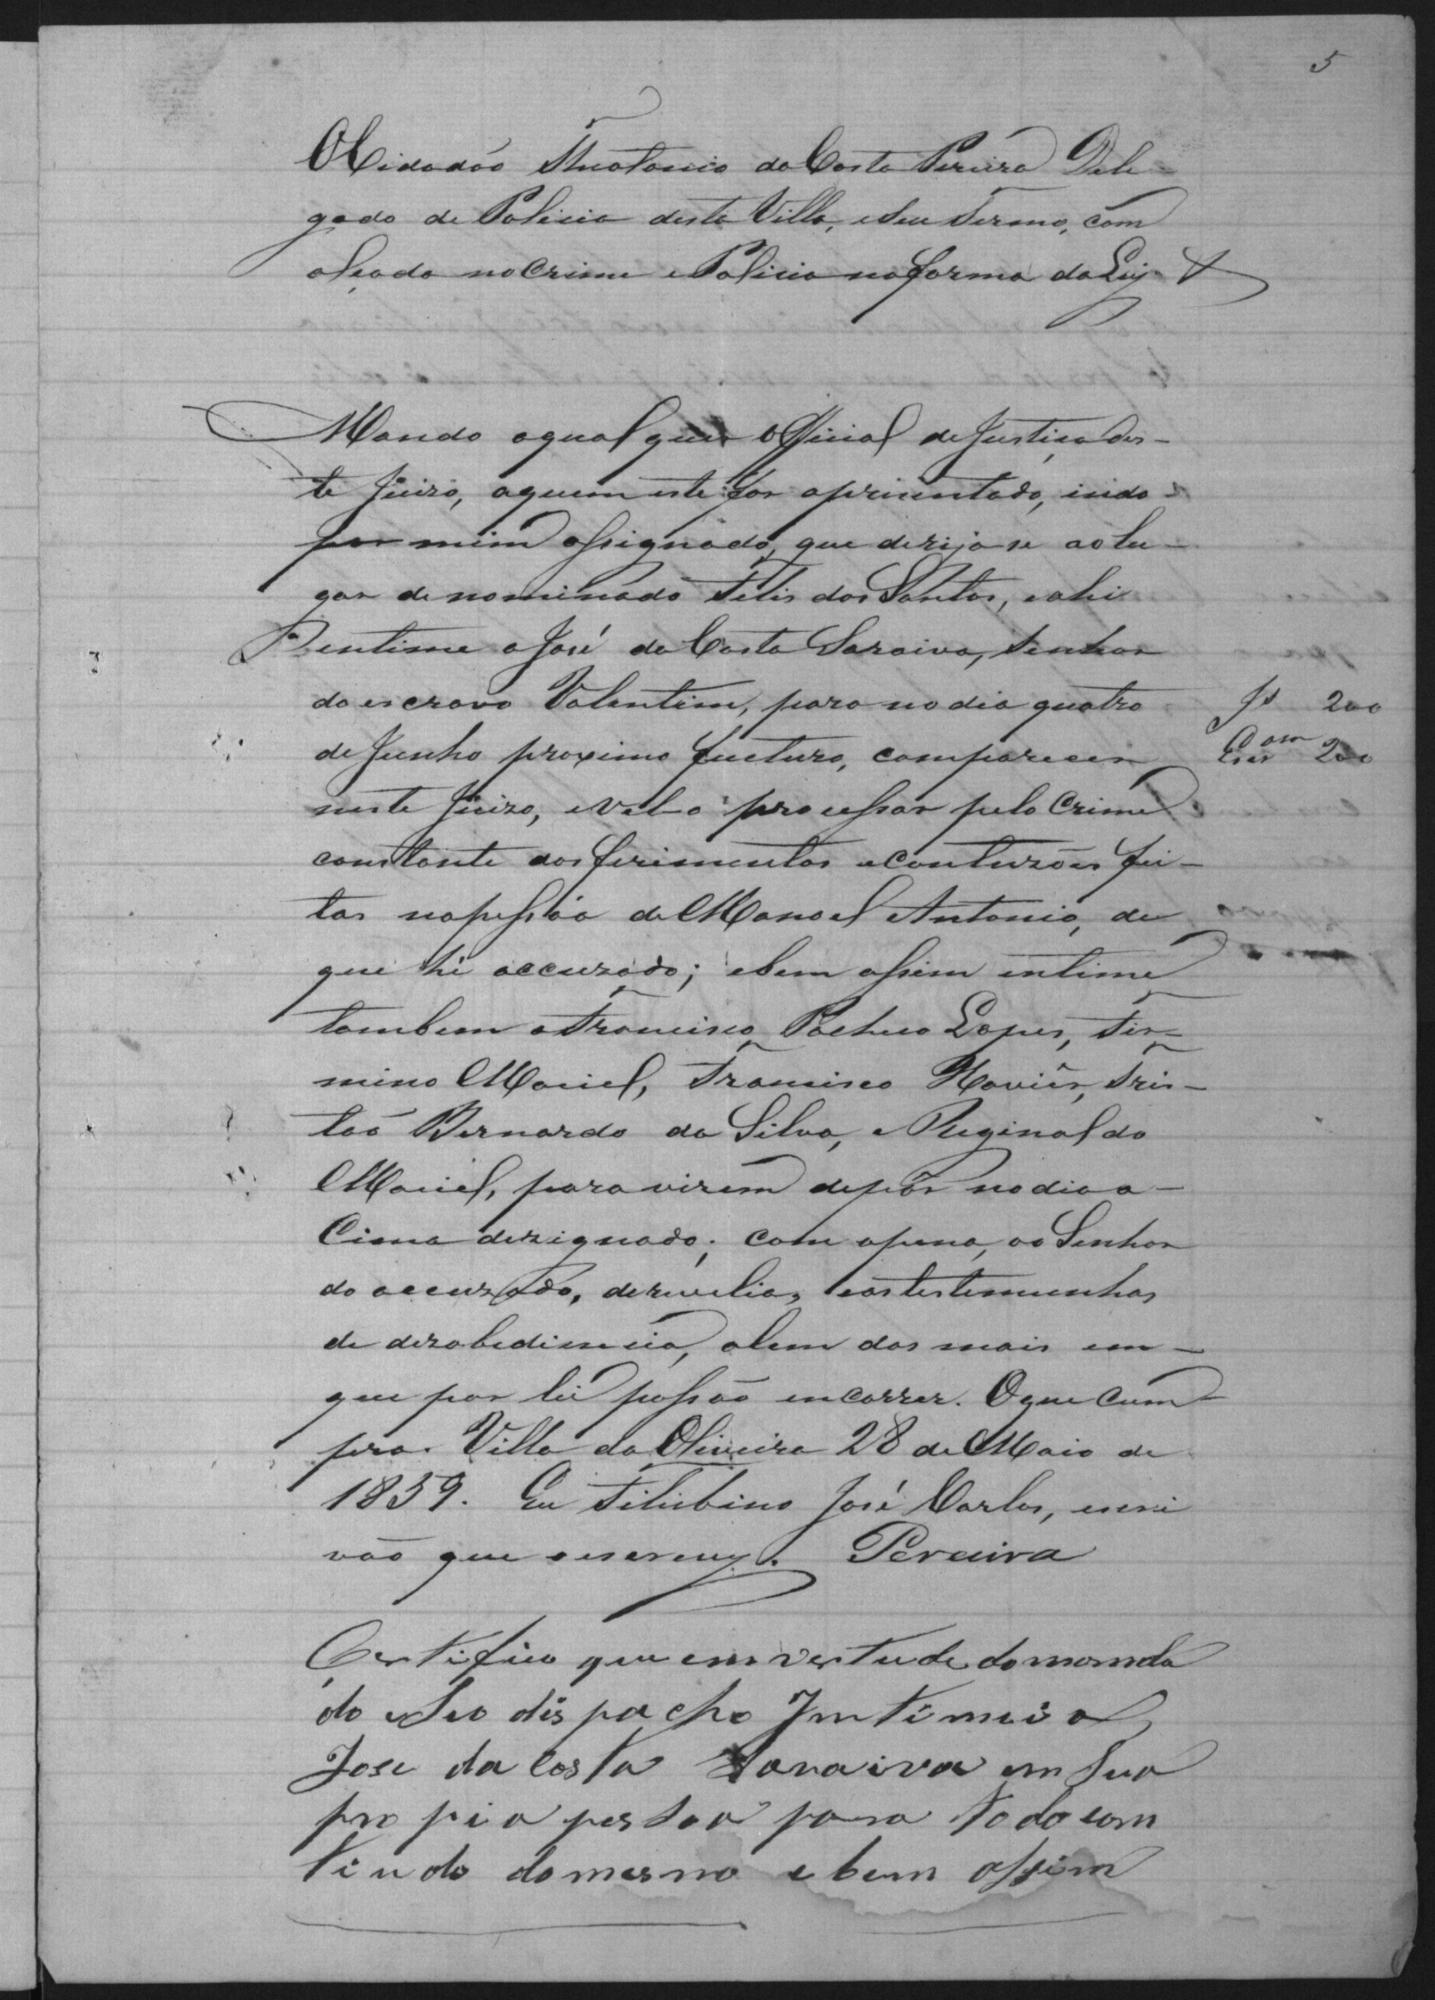 5
O Cidadão Theotonio da Costa Pereira Dele-
gado de Policia desta Villa, e seu Termo, com
alçada no Crime e Policia na forma da Ley &
Mando a qual quer Official de Justiça des-
te Juizo, a quem este for aprizentado, indo
por mim assignado, que derija se ao lu-
gar denominado Felis dos Santos, e ahi
intime a José da Costa Saraiva, Senhor
do escravo Valentim, para no dia quatro
de Junho proximo fucturo, comparecer
neste Juizo, e velo processar pelo Crime
constante dos ferimentos e contuzões fei-
tas na pessôa de Manoel Antonio, de
que hé accuzado; e bem assim intime
tambem a Francisco Pacheco Lopes, Fir-
mino Maciel, Francisco Xaviêr, Tris-
tão Bernardo da Silva, e Reginaldo
Maciel, para virem depôr no dia a-
Cima dezignado; com a pena, ao Senhor
do accuzado, de revelia, e as testemunhas
de dezobediencia, alem das mais em-
que por lei possão encorrer. O que Cum
pra. Villa da Oliveira 28 de Maio de
1859. Eu José Carlos, escri
vão que o escrevy. Pereira
200
200
Certifico que em vertude do manda
do e seo dispacho Intimei a
Jose da Costa Saraiva em sua
propia pessoa para todo con
tiudo do mesmo e bem assim